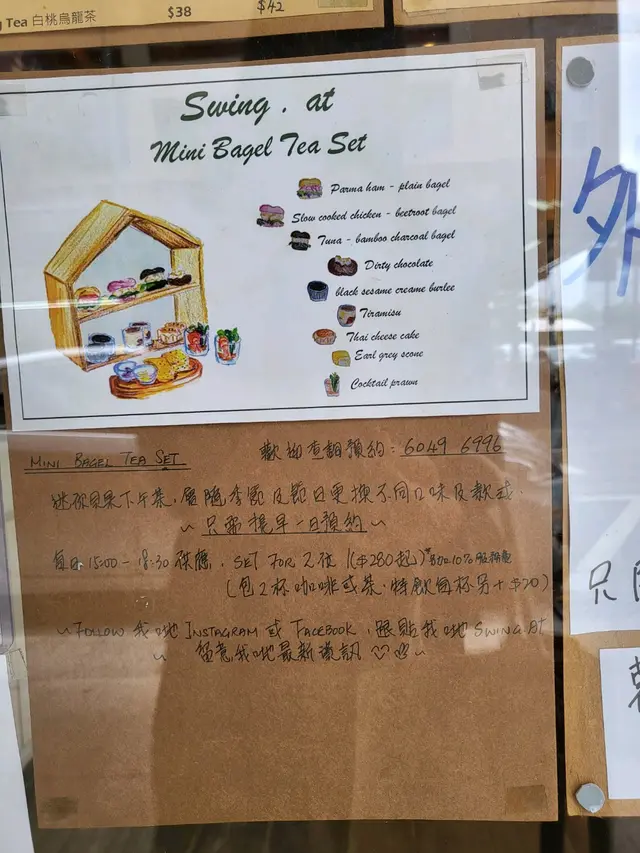 Tea 白桃烏龍茶 $38 $42
Swing . at
Mini Bagel Tea Set
Parma ham - plain bagel
Slow cooked chicken - beetroot bagel
Tuna - bamboo charcoal bagel
Dirty chocolate
black sesame creame burlee
Tiramisu
Thai cheese cake
Earl grey scone
Cocktail prawn
外
MINI BAGEL TEA SET
歡迎查詢預約: 6049 6996
迷你貝果下午茶,會隨季節及節日更換不同口味及款式.
~ 只需提早一日預約 ~
每日 15:00 - 18:30 供應. SET FOR 2位 ($280起) *另加10%服務費
(包2杯咖啡或茶.特飲每杯另+$20)
~ FOLLOW 我哋 INSTAGRAM 或 FACEBOOK, 跟貼我哋 SWING.AT
~ 留意我哋最新資訊 ♡ ~
只